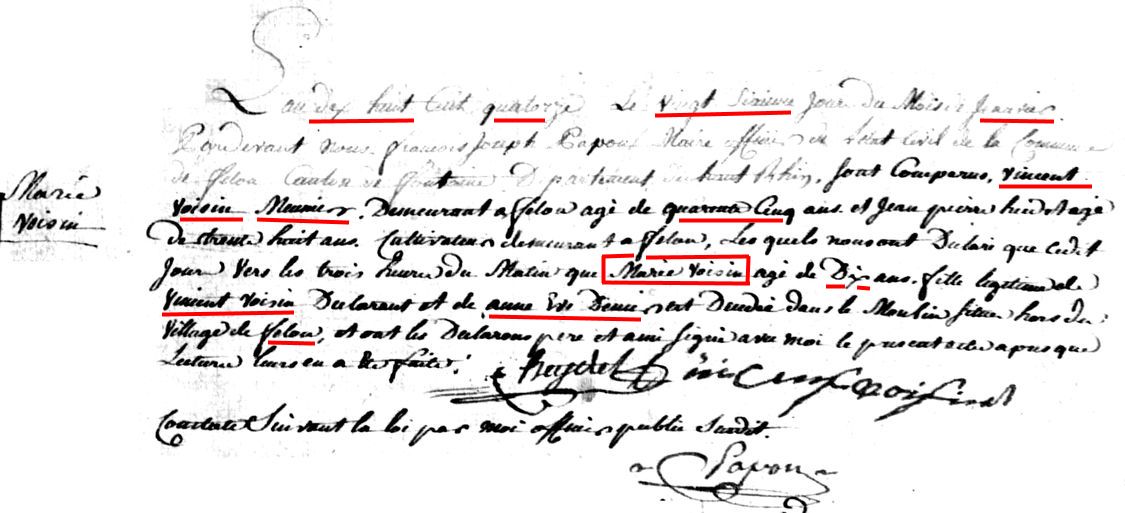 L'an dix huit Cent quatorze Le Vingt Sixieme Jour du Mois de Janvier
Pardevant nous françois Joseph Papoux Maire officier de l'état Civil de la Commune
de felon Canton de fontaine Departement du haut Rhin, sont Comparus, Vincent
Voisin Meunier, Demeurant a felon agé de quarante Cinq ans. et Jean pierre agé
de trente huit ans. Cultivateur demeurant a felon, Les quels nous ont Declaré que cedit
Jour Vers les trois heure du Matin que Marie Voisin agé de Dix ans. fille legitime de
Vincent Voisin Declarant et de anne Eve est Decedée dans le Moulin situé hors du
Village de felon, et ont les Declarans pere et ami signé avec moi le present acte apres que
Lecture leurs en a été faite.
Marie
Voisin
Heydet vincent voisin
Constaté Suivant la loi par moi officier public Susdit.
Papoux